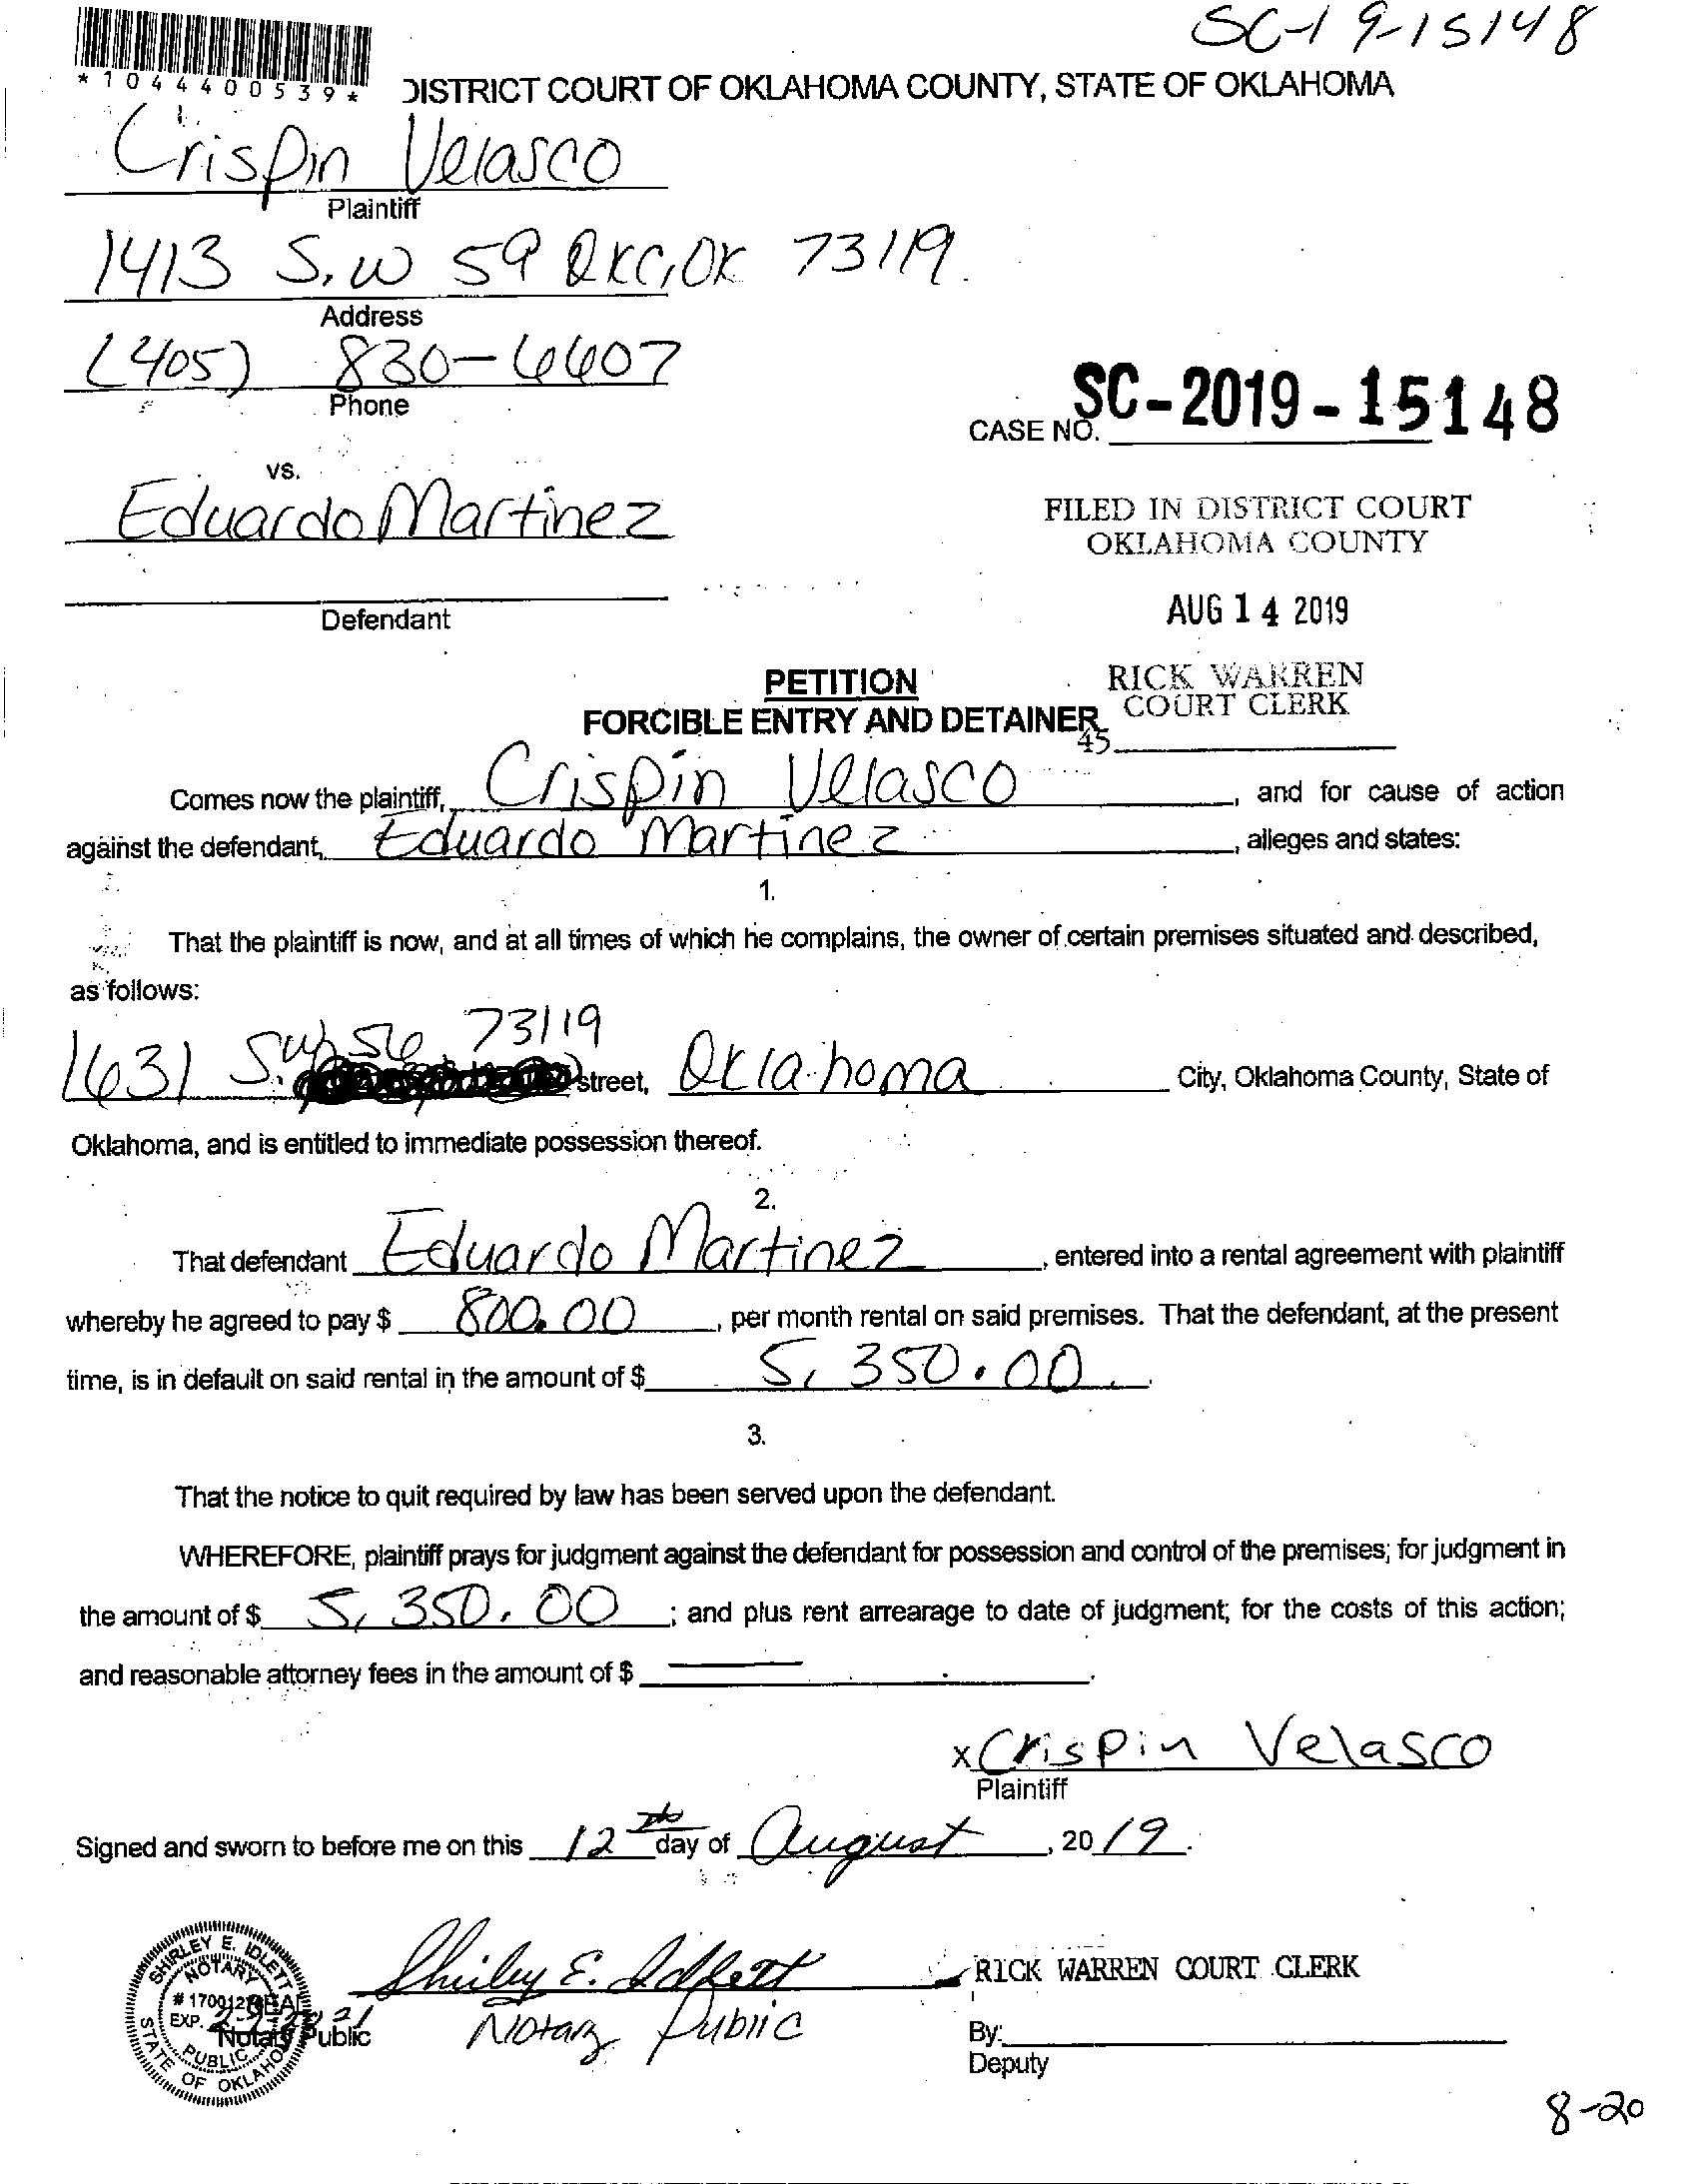 SC-19-15148
*1044400539*
DISTRICT COURT OF OKLAHOMA COUNTY, STATE OF OKLAHOMA
Crispin Velasco
Plaintiff
1413 S.W 59 OKC, OK 73119.
Address
(405) 830-6607
Phone
CASE NO. SC-2019-15148
vs.
Eduardo Martinez
FILED IN DISTRICT COURT
OKLAHOMA COUNTY
Defendant
AUG 14 2019
RICK WARREN
COURT CLERK
45
PETITION
FORCIBLE ENTRY AND DETAINER
Comes now the plaintiff, Crispin Velasco, and for cause of action
against the defendant, Eduardo Martinez, alleges and states:
1.
That the plaintiff is now, and at all times of which he complains, the owner of certain premises situated and described,
as follows:
1631 S.W 56 73119 street, Oklahoma City, Oklahoma County, State of
Oklahoma, and is entitled to immediate possession thereof.
2.
That defendant Eduardo Martinez, entered into a rental agreement with plaintiff
whereby he agreed to pay $ 800.00, per month rental on said premises. That the defendant, at the present
time, is in default on said rental in the amount of $ 5,350.00.
3.
That the notice to quit required by law has been served upon the defendant.
WHEREFORE, plaintiff prays for judgment against the defendant for possession and control of the premises; for judgment in
the amount of $ 5,350.00; and plus rent arrearage to date of judgment; for the costs of this action;
and reasonable attorney fees in the amount of $ .
x Crispin Velasco
Plaintiff
Signed and sworn to before me on this 12th day of August, 2019.
SHIRLEY E. IDLETT
NOTARY
EXP.
PUBLIC
STATE OF OKLAHOMA
Shirley E. Idlett
Notary Public
Notary Public
RICK WARREN COURT CLERK
By:
Deputy
8-20